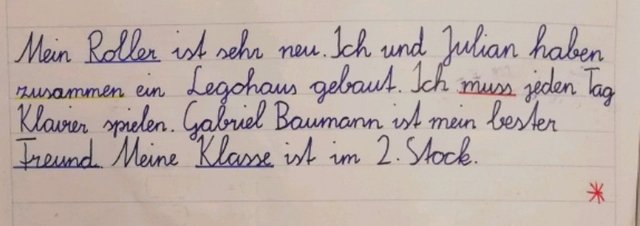 Mein Roller ist sehr neu. Ich und Julian haben
zusammen ein Legohaus gebaut. Ich muss jeden Tag
Klavier spielen. Gabriel Baumann ist mein bester
Freund. Meine Klasse ist im 2. Stock.